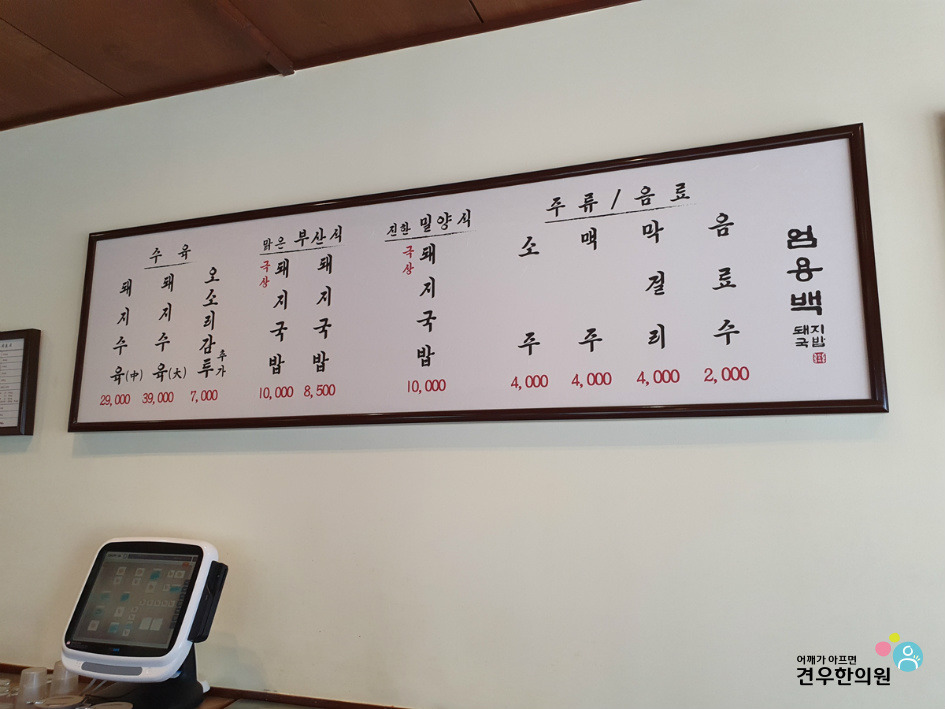 수육
돼지수육(中)
29,000
돼지수육(大)
39,000
오소리감투 추가
7,000
맑은 부산식
극상 돼지국밥
10,000
돼지국밥
8,500
진한 밀양식
극상 돼지국밥
10,000
주류/음료
소주
4,000
맥주
4,000
막걸리
4,000
음료수
2,000
엄용백
돼지국밥
어깨가 아프면
견우한의원